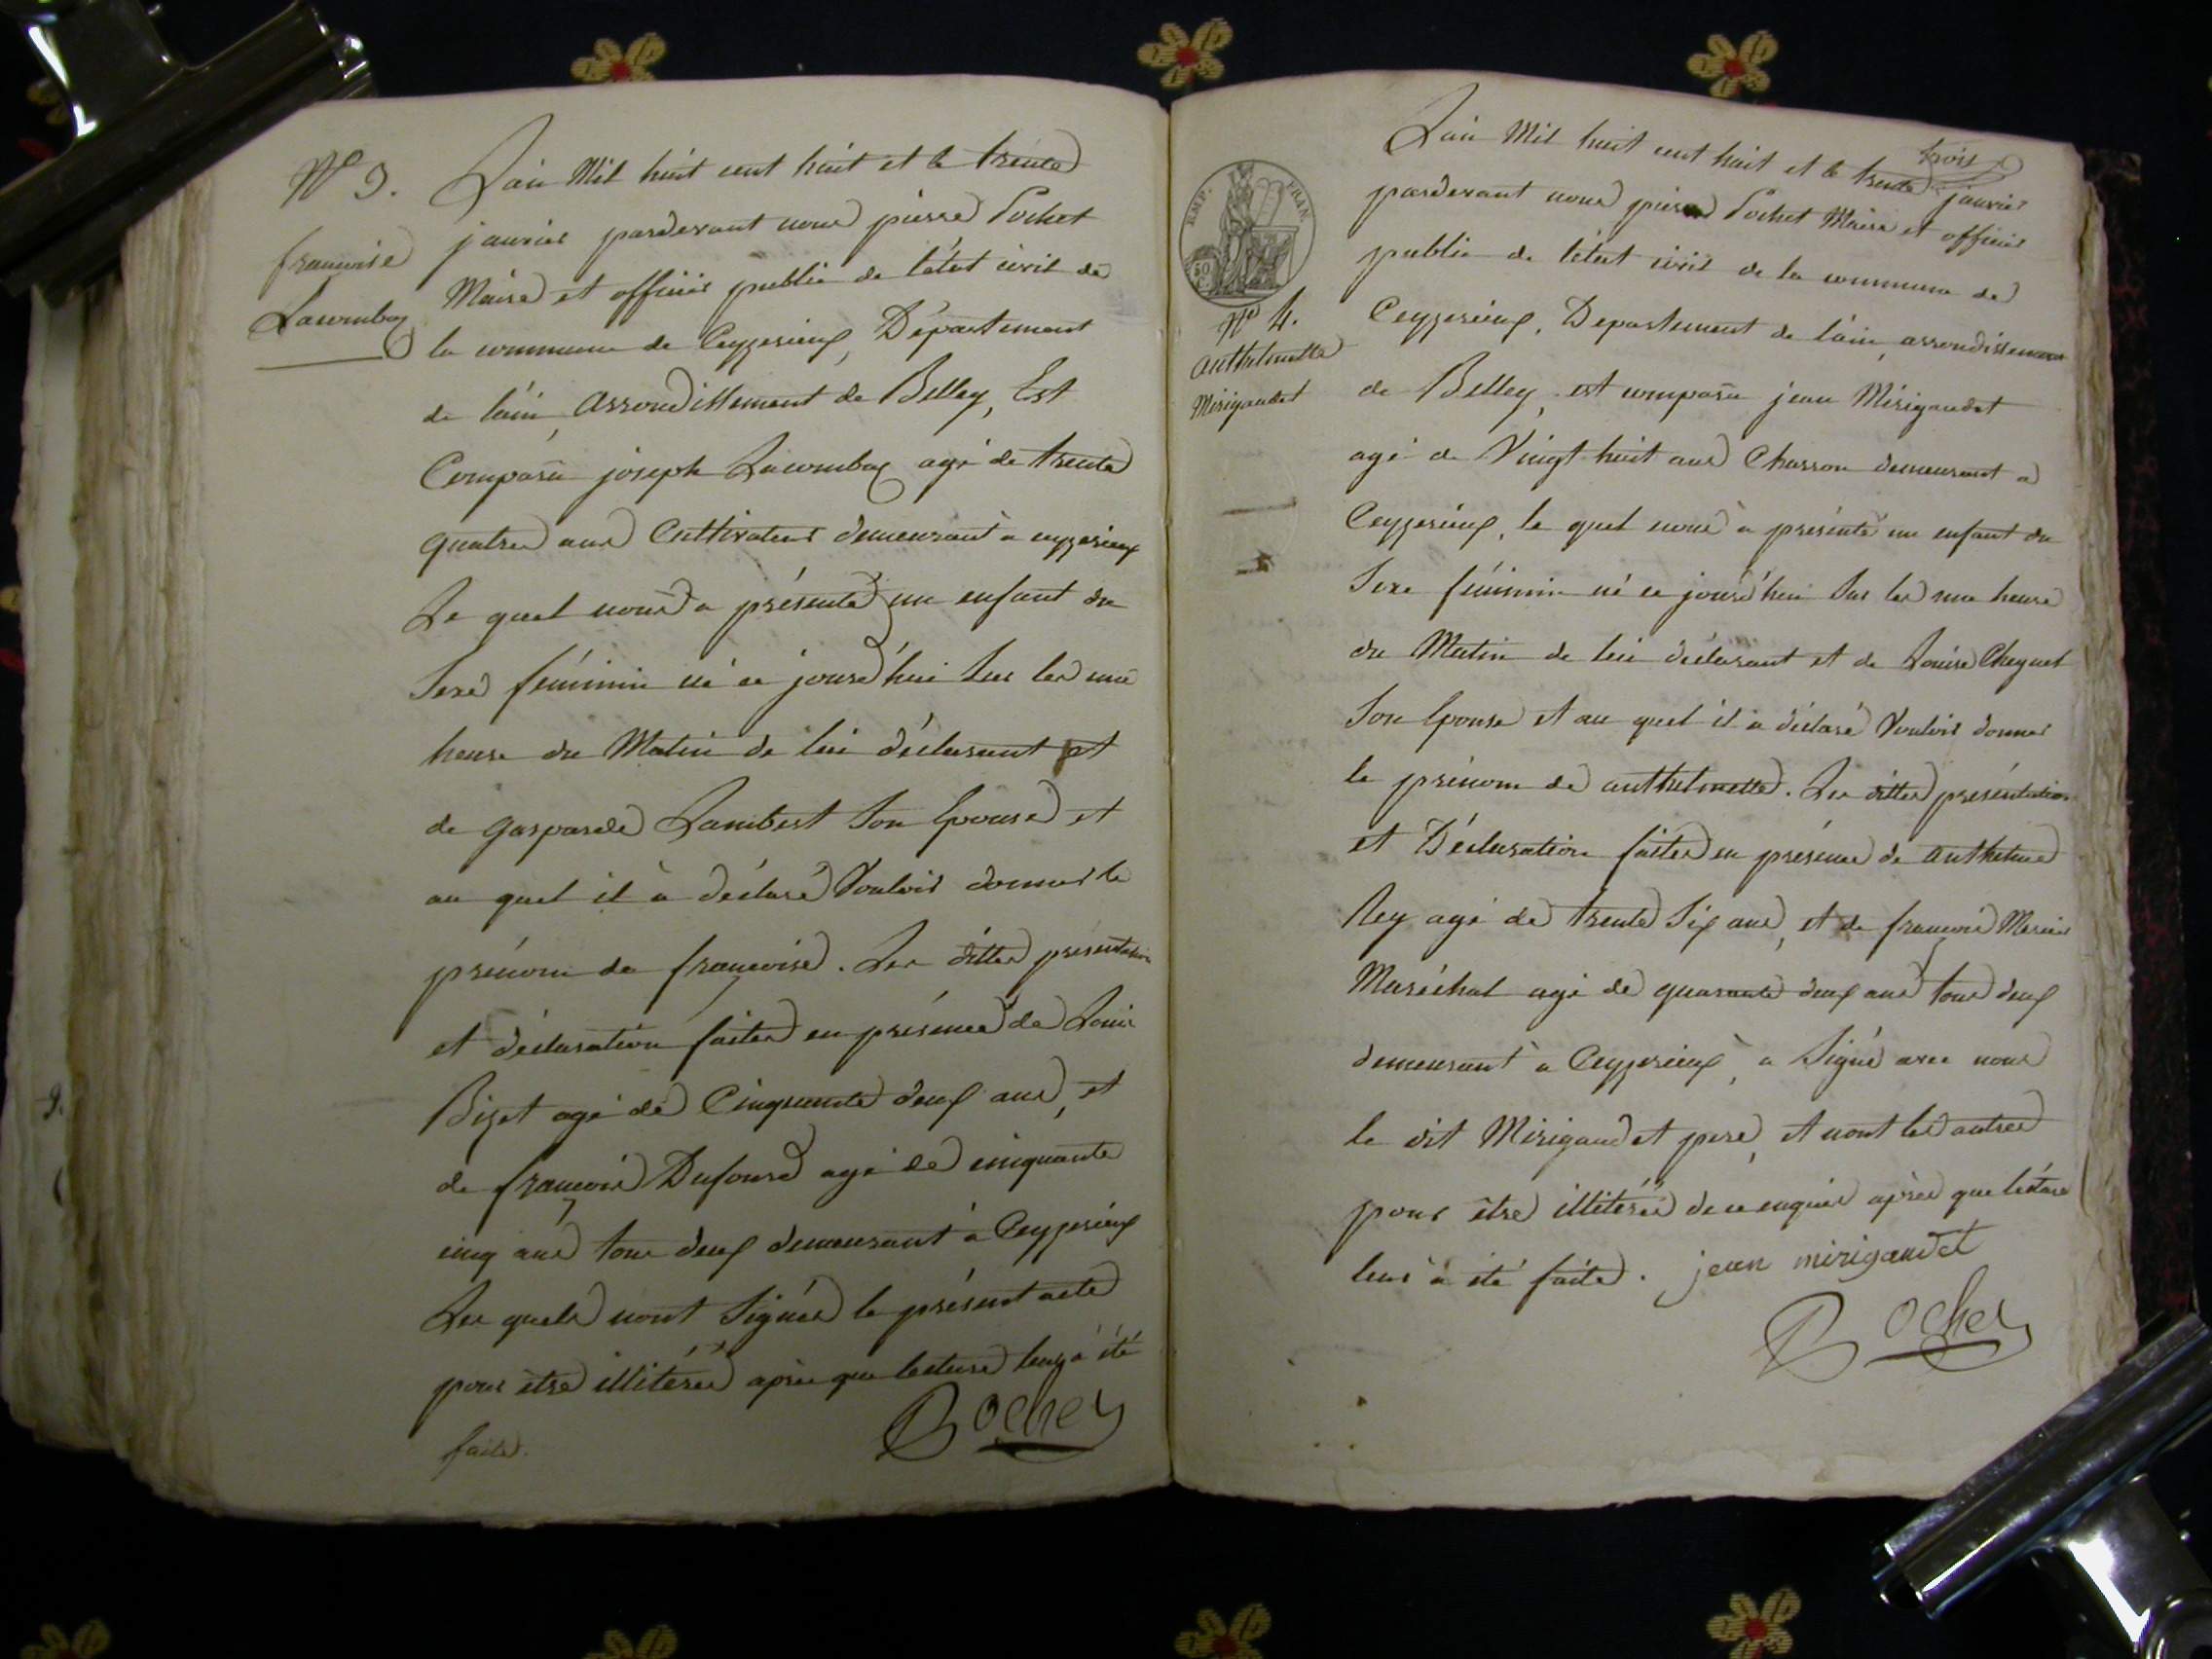 N° 3.
françoise
Lacombaz
L'ain Mil huit cent huit et le trente
janvier pardevant nous pierre Pochet
Maire et officier public de l'état civil de
la commune de Ceyzerieux, Département
de l'ain, Arrondissement de Belley, Est
Comparu joseph Lacombaz agé de trente
quatre ans Cultivateur demeurant à ceyzerieux
Le quel nous a présenté un enfant du
Sexe féminin né ce jourd'hui Sur les une
heure du Matin de lui déclarant et
de gasparde Lambert Son Epouse et
au quel il à déclaré Vouloir donner le
prénom de françoise. Les dittes présentation
et déclaration faites en présence de Louis
Bizet agé de Cinquante deux ans, et
de françois Dufour agé de cinquante
cinq ans tous deux demeurant à Ceyzerieux
Les quels nont Signés le présent acte
pour être illitérés après que lecture leur à été
faite.
Pochet
EMP. FRAN.
50 C.
N° 4.
anthelmette
Mirigaudet
L'ain Mil huit cent huit et le trente trois janvier
pardevant nous pierre Pochet Maire et officier
public de l'état civil de la commune de
Ceyzerieux, Departement de l'ain, arrondissement
de Belley, est comparu jean Mérigaudet
agé de Vingt huit ans Charron demeurant a
Ceyzerieux, le quel nous à présenté un enfant du
Sexe féminin né ce jourd'hui Sur les une heure
du Matin de lui déclarant et de Louise Cheynet
Son Epouse et au quel il à déclaré Vouloir donner
le prénom de anthelmette. Les dittes présentation
et Déclaration faites en présence de anthelme
Rey agé de trente Six ans, et de françois Mercier
Maréchal agé de quarante deux ans tous deux
demeurant à Ceyzerieux, a Signé avec nous
le dit Mirigaudet pere, et nont les autres
pour être illitérés de ce enquis après que lecture
leur à été faite. jean mirigaudet
Pochet